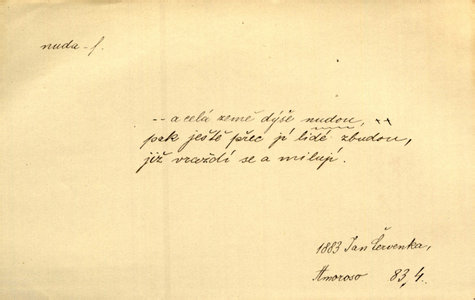 nuda - f.
-- a celá země dýše nudou,
pak ještě přec jí lidé zbudou,
již vraždí se a milují.
1883 Jan Červenka,
Amoroso 83, 4.